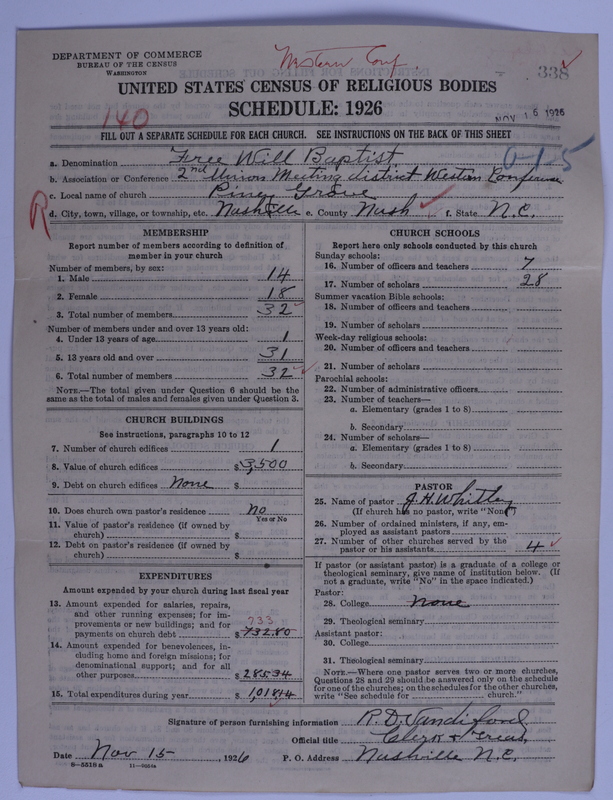 DEPARTMENT OF COMMERCE
BUREAU OF THE CENSUS
WASHINGTON
Western Conf.
338
UNITED STATES CENSUS OF RELIGIOUS BODIES
SCHEDULE: 1926
140
NOV 16 1926
FILL OUT A SEPARATE SCHEDULE FOR EACH CHURCH. SEE INSTRUCTIONS ON THE BACK OF THIS SHEET
a. Denomination Free Will Baptist 0/15
b. Association or Conference 2nd Union Meeting district Western Conference
c. Local name of church Piney Grove
R
d. City, town, village, or township, etc. Nashville e. County Nash f. State N.C.
MEMBERSHIP
Report number of members according to definition of
member in your church
Number of members, by sex:
1. Male 14
2. Female 18
3. Total number of members 32
Number of members under and over 13 years old:
4. Under 13 years of age 1
5. 13 years old and over 31
6. Total number of members 32
NOTE.—The total given under Question 6 should be the
same as the total of males and females given under Question 3.
CHURCH BUILDINGS
See instructions, paragraphs 10 to 12
7. Number of church edifices 1
8. Value of church edifices $3,500
9. Debt on church edifices None $
10. Does church own pastor's residence No
Yes or No
11. Value of pastor's residence (if owned by
church) $
12. Debt on pastor's residence (if owned by
church) $
EXPENDITURES
Amount expended by your church during last fiscal year
13. Amount expended for salaries, repairs,
and other running expenses; for im-
provements or new buildings; and for
payments on church debt $ 733 732.80
14. Amount expended for benevolences, in-
cluding home and foreign missions; for
denominational support; and for all
other purposes $ 285.34
15. Total expenditures during year $ 1,018.14
CHURCH SCHOOLS
Report here only schools conducted by this church
Sunday schools:
16. Number of officers and teachers 7
17. Number of scholars 28
Summer vacation Bible schools:
18. Number of officers and teachers
19. Number of scholars
Week-day religious schools:
20. Number of officers and teachers
21. Number of scholars
Parochial schools:
22. Number of administrative officers
23. Number of teachers—
a. Elementary (grades 1 to 8)
b. Secondary
24. Number of scholars—
a. Elementary (grades 1 to 8)
b. Secondary
PASTOR
25. Name of pastor J.H. Whitley
(If church has no pastor, write "None")
26. Number of ordained ministers, if any, em-
ployed as assistant pastors
27. Number of other churches served by the
pastor or his assistants 4
If pastor (or assistant pastor) is a graduate of a college or
theological seminary, give name of institution below. (If
not a graduate, write "No" in the space indicated.)
Pastor:
28. College None
29. Theological seminary
Assistant pastor:
30. College
31. Theological seminary
NOTE.—Where one pastor serves two or more churches,
Questions 28 and 29 should be answered only on the schedule
for one of the churches; on the schedules for the other churches,
write "See schedule for church."
Signature of person furnishing information R.D. Vandiford
Official title Clerk & Treas.
Date Nov 15, 1926 P. O. Address Nashville N.C.
8—5518a 11—9564a